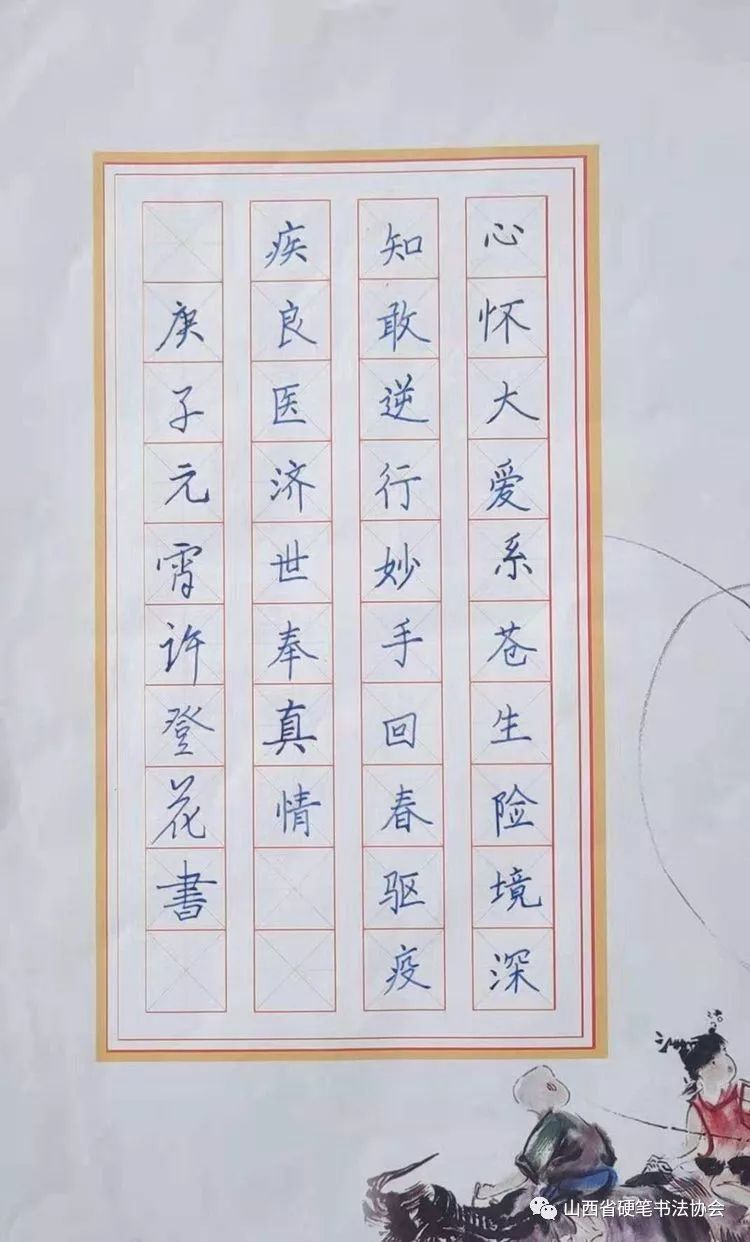 心怀大爱系苍生险境深
知敢逆行妙手回春驱疫
疾良医济世奉真情
庚子元宵许登花書
山西省硬笔书法协会